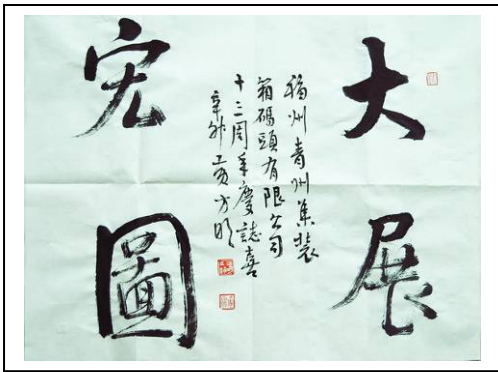 大展
宏圖
福州青州集裝
箱碼頭有限公司
十三周年慶誌喜
辛卯